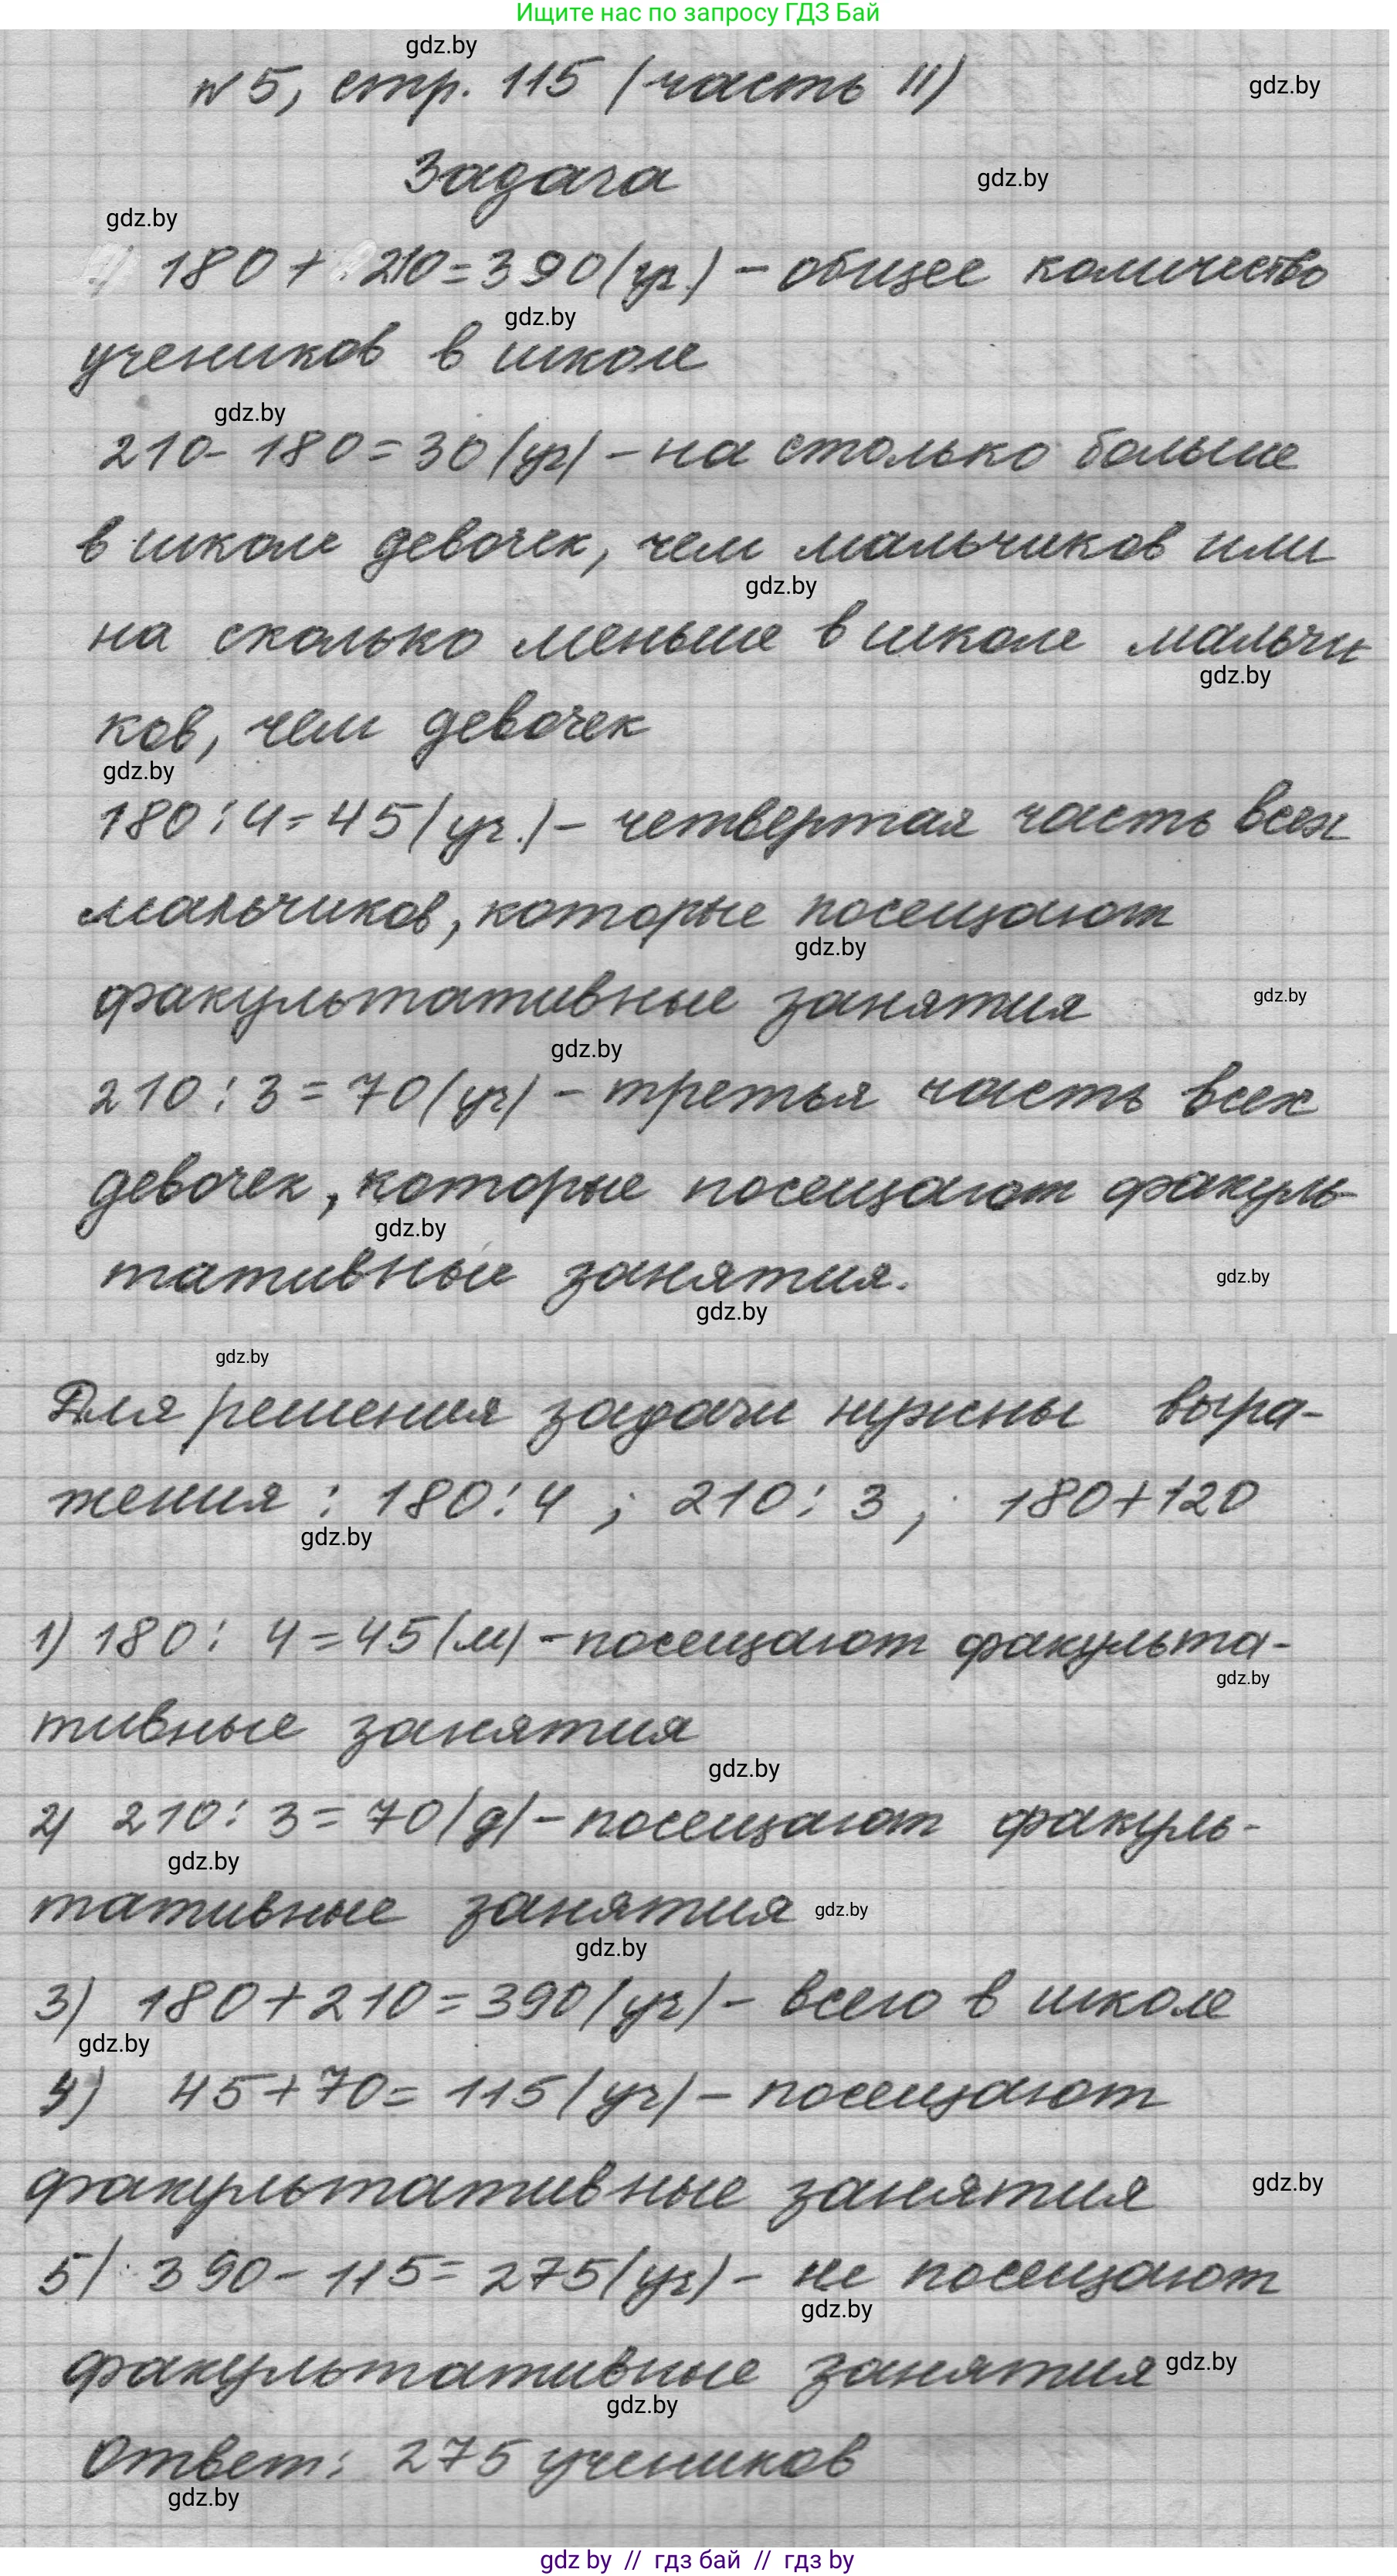 Ищите нас по запросу ГДЗ Бай
gdz.by
№5, стр. 115 (часть II)
gdz.by
Задача
gdz.by
gdz.by
180 + 210 = 390 (уч.) - общее количество
gdz.by
учеников в школе
gdz.by
210 - 180 = 30 (уч) - на столько больше
в школе девочек, чем мальчиков или
gdz.by
на сколько меньше в школе мальчи
gdz.by
ков, чем девочек
gdz.by
180 : 4 = 45 (уч.) - четвертая часть всех
мальчиков, которые посещают
gdz.by
факультативные занятия
gdz.by
gdz.by
210 : 3 = 70 (уч) - третья часть всех
девочек, которые посещают факуль-
gdz.by
тативные занятия.
gdz.by
gdz.by
gdz.by
Для решения задачи нужны выра-
жения : 180 : 4 ; 210 : 3 ; 180 + 120
gdz.by
1) 180 : 4 = 45 (м) - посещают факульта-
gdz.by
тивные занятия
gdz.by
2) 210 : 3 = 70 (д) - посещают факуль-
gdz.by
тативные занятия
gdz.by
gdz.by
3) 180 + 210 = 390 (уч) - всего в школе
gdz.by
4) 45 + 70 = 115 (уч) - посещают
факультативные занятия
gdz.by
5) 390 - 115 = 275 (уч) - не посещают
gdz.by
факультативные занятия
gdz.by
gdz.by
Ответ: 275 учеников
gdz.by
gdz by // гдз бай // гдз by